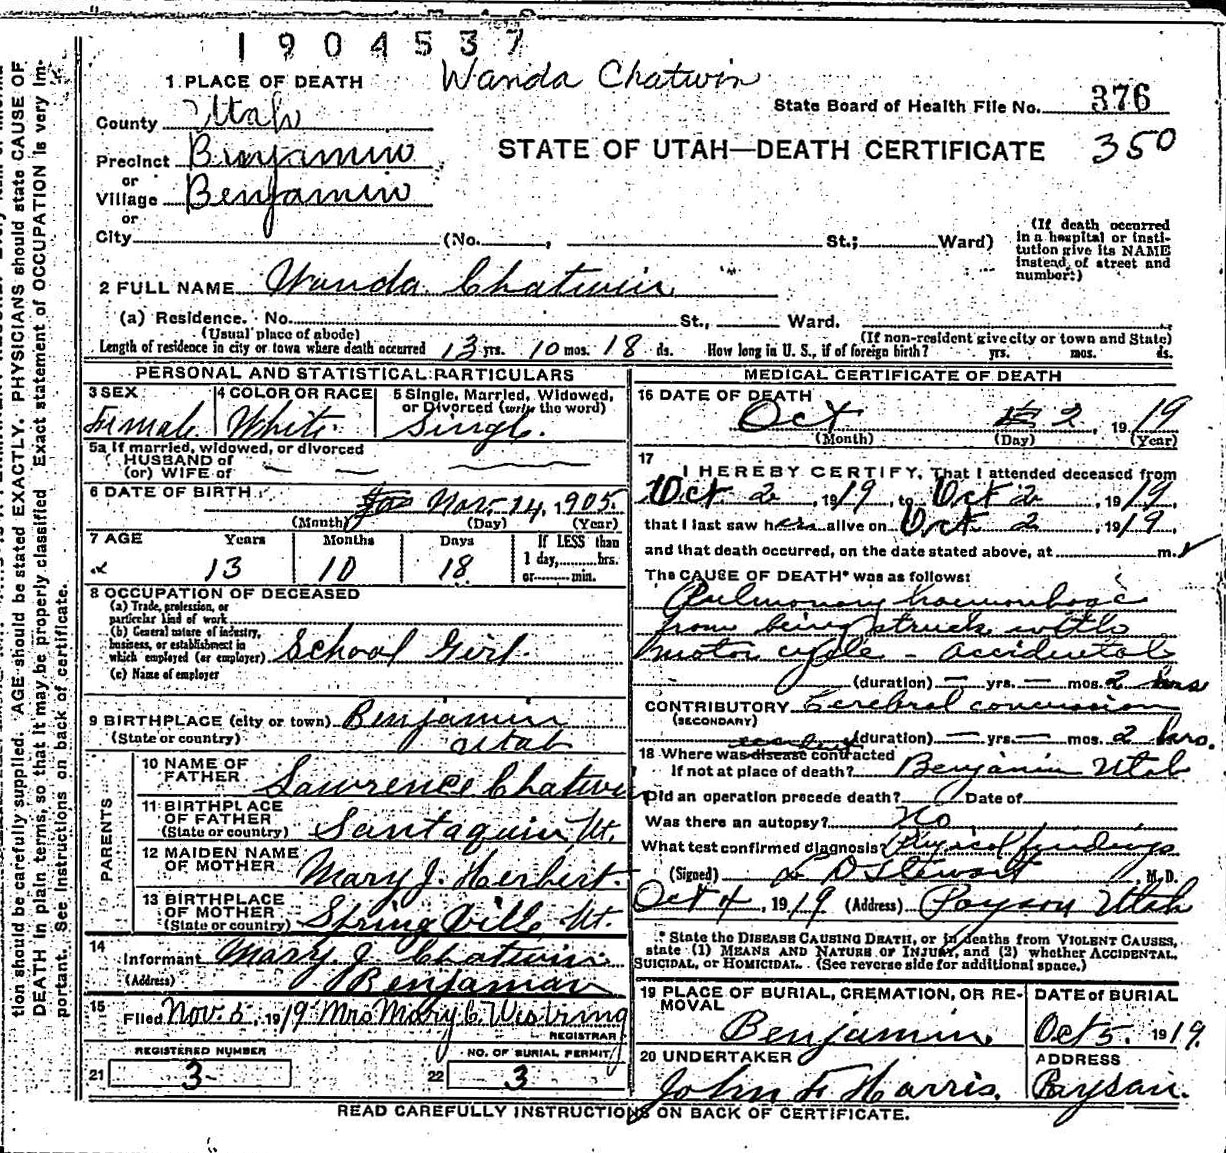 1904537
Wanda Chatwin
1 PLACE OF DEATH
State Board of Health File No. 376
County Utah
STATE OF UTAH—DEATH CERTIFICATE 350
Precinct Benjamin
or
Village Benjamin
or
City (No. , St.; Ward)
(If death occurred in a hospital or institution give its NAME instead of street and number.)
2 FULL NAME Wanda Chatwin
(a) Residence. No. St., Ward.
(Usual place of abode) (If non-resident give city or town and State)
Length of residence in city or town where death occurred 13 yrs. 10 mos. 18 ds. How long in U. S., if of foreign birth? yrs. mos. ds.
PERSONAL AND STATISTICAL PARTICULARS
3 SEX 4 COLOR OR RACE 5 Single, Married, Widowed, or Divorced (write the word)
Female White Single.
5a If married, widowed, or divorced
HUSBAND of
(or) WIFE of
6 DATE OF BIRTH Nov. 14, 1905.
(Month) (Day) (Year)
7 AGE Years Months Days If LESS than 1 day, hrs. or min.
13 10 18
8 OCCUPATION OF DECEASED
(a) Trade, profession, or particular kind of work
(b) General nature of industry, business, or establishment in which employed (or employer) School Girl.
(c) Name of employer
9 BIRTHPLACE (city or town) Benjamin
(State or country) Utah
PARENTS
10 NAME OF FATHER Lawrence Chatwin
11 BIRTHPLACE OF FATHER (State or country) Santaquin Ut.
12 MAIDEN NAME OF MOTHER Mary J. Herbert.
13 BIRTHPLACE OF MOTHER (State or country) Spring Ville Ut.
14 Informant Mary J Chatwin
(Address) Benjamin
15 Filed Nov. 5, 1919 Mrs Mary C. Westring
REGISTRAR
REGISTERED NUMBER NO. OF BURIAL PERMIT
21 3 22 3
MEDICAL CERTIFICATE OF DEATH
16 DATE OF DEATH
Oct 2, 1919
(Month) (Day) (Year)
17 I HEREBY CERTIFY, That I attended deceased from
Oct 2, 1919, to Oct 2, 1919,
that I last saw her alive on Oct 2, 1919,
and that death occurred, on the date stated above, at m.
The CAUSE OF DEATH* was as follows:
Pulmonary haemorrhage
from being struck with
motor cycle - accidental
(duration) — yrs. — mos. 2 hrs
CONTRIBUTORY Cerebral concussion
(SECONDARY)
(duration) — yrs. — mos. 2 hrs.
18 Where was disease contracted accident
If not at place of death? Benjamin Utah
Did an operation precede death? Date of
Was there an autopsy? No
What test confirmed diagnosis? Physical findings
(Signed) L D Stewart, M.D.
Oct 4, 1919 (Address) Payson Utah
* State the DISEASE CAUSING DEATH, or in deaths from VIOLENT CAUSES, state (1) MEANS AND NATURE OF INJURY, and (2) whether ACCIDENTAL, SUICIDAL, or HOMICIDAL. (See reverse side for additional space.)
19 PLACE OF BURIAL, CREMATION, OR REMOVAL DATE of BURIAL
Benjamin. Oct 5. 1919.
20 UNDERTAKER ADDRESS
John F Harris. Paysan.
READ CAREFULLY INSTRUCTIONS ON BACK OF CERTIFICATE.
tion should be carefully supplied. AGE should be stated EXACTLY. PHYSICIANS should state CAUSE OF
DEATH in plain terms, so that it may be properly classified. Exact statement of OCCUPATION is very im-
portant. See Instructions on back of certificate.